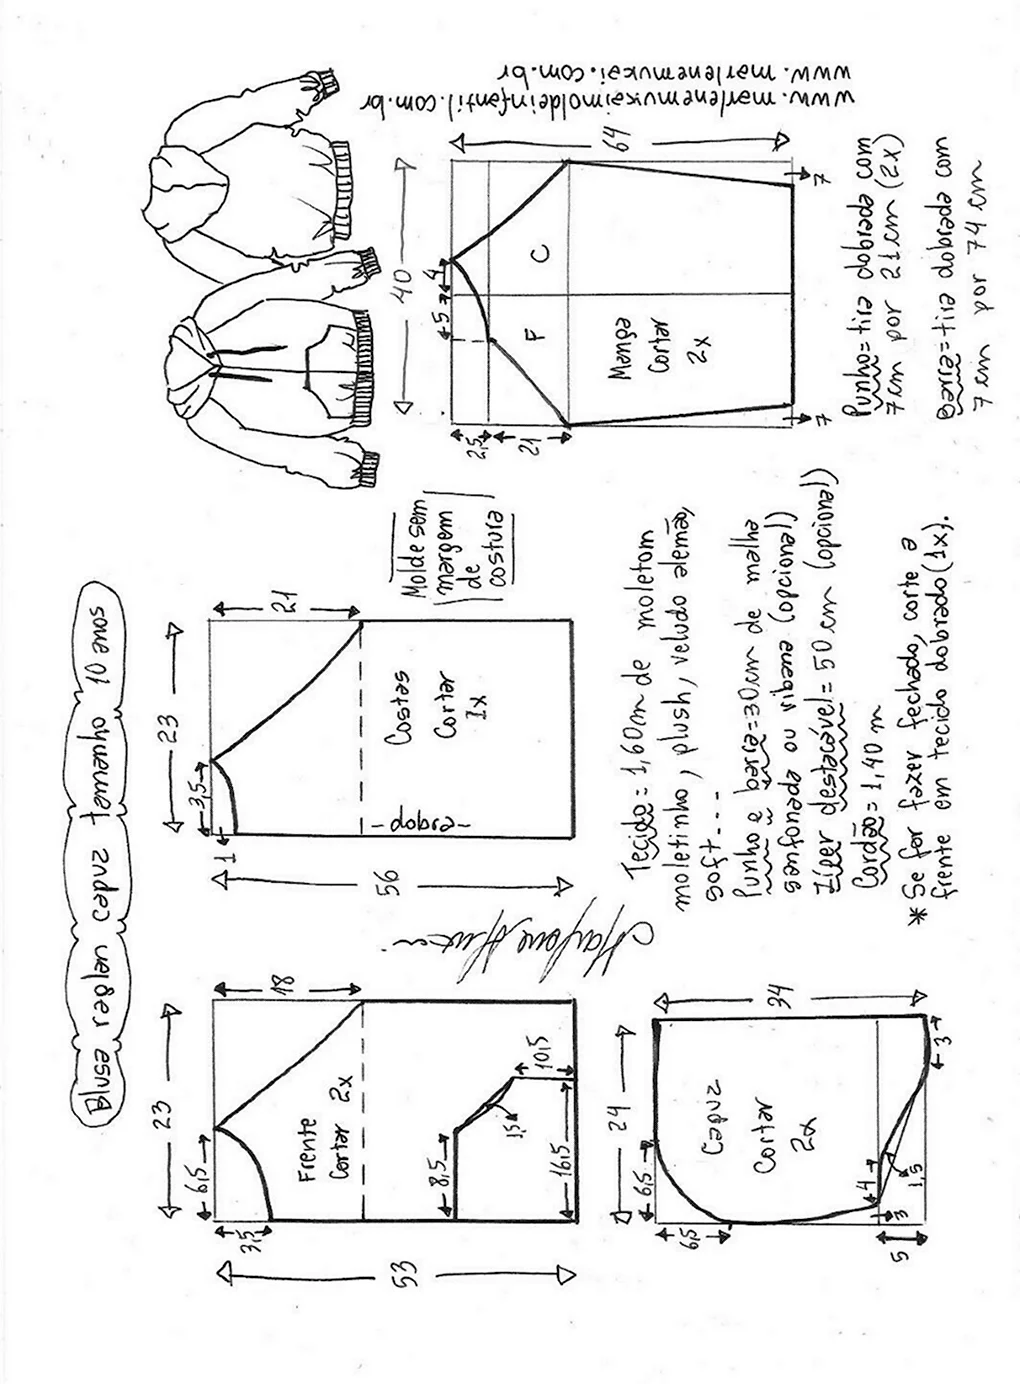 Blusa raglan capuz tamanho 10 anos
53
3,5
6,5
23
18
Frente
Cortar 2x
8,5
1,5
10,5
16,5
56
1
3,5
23
21
Costas
Cortar
1x
-dobra-
Molde sem
margem
de
costura
www.marlenemukaimoldeinfantil.com.br
www.marlenemukai.com.br
40
5
4
64
2,5
21
F
C
Manga
Cortar
2x
7
7
Punho=tira dobrada com
7cm por 21cm (2x)
Barra=tira dobrada com
7cm por 74cm
24
6,5
6,5
34
Capuz
Cortar
2x
4
3
5
1,5
3
Tecido=1,60m de moletom
moletinho, plush, veludo alemão,
soft...
Punho e barra=30cm de malha
sanfonada ou ribana (opcional)
Zíper destacável=50cm (opcional)
Cordão=1,40m
*Se for fazer fechado, corte a
frente em tecido dobrado (1x).